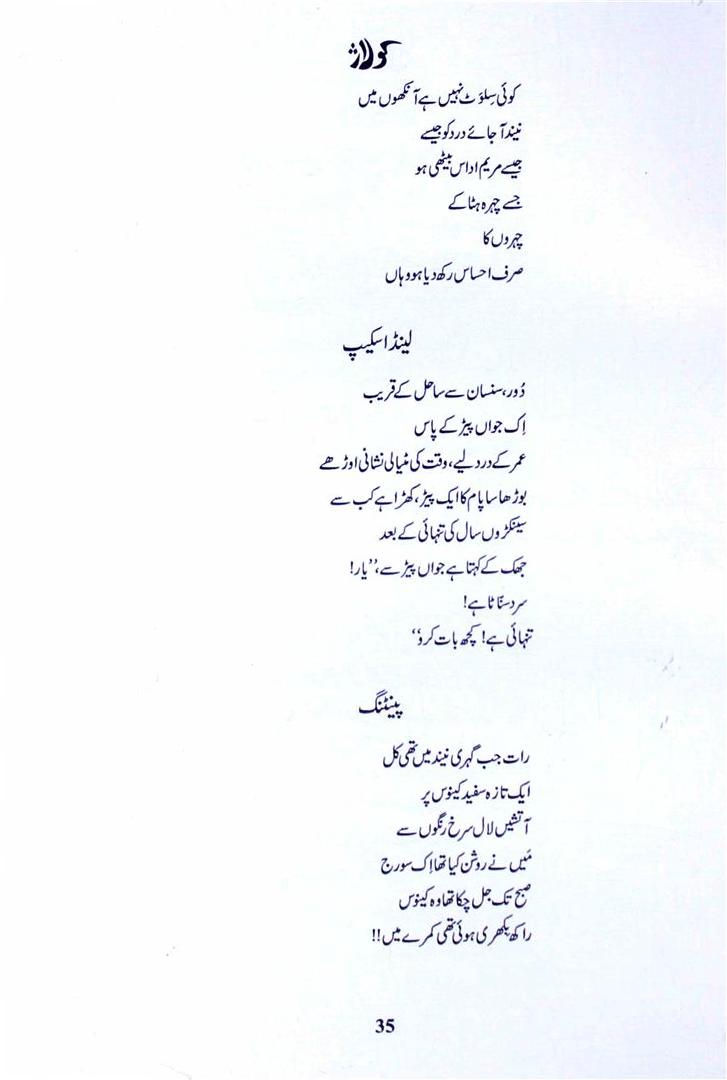 کولاژ
کوئی سِلوَٹ نہیں ہے آنکھوں میں
نیند آ جائے درد کو جیسے
جیسے مریم اداس بیٹھی ہو
جسے چہرہ ہٹا کے
چہروں کا
صرف احساس رکھ دیا ہو وہاں
لینڈ اسکیپ
دُور، سنسان سے ساحل کے قریب
اِک جواں پیڑ کے پاس
عمر کے درد لیے، وقت کی مٹیالی نشانی اوڑھے
بوڑھا سا پام کا ایک پیڑ، کھڑا ہے کب سے
سینکڑوں سال کی تنہائی کے بعد
جھک کے کہتا ہے جواں پیڑ سے، ’’یار!
سرد سنّاٹا ہے!
تنہائی ہے! کچھ بات کرو‘‘
پینٹنگ
رات جب گہری نیند میں تھی کل
ایک تازہ سفید کینوس پر
آتشیں لال سرخ رنگوں سے
مَیں نے روشن کیا تھا اِک سورج
صبح تک جل چکا تھا وہ کینوس
راکھ بکھری ہوئی تھی کمرے میں!!
35